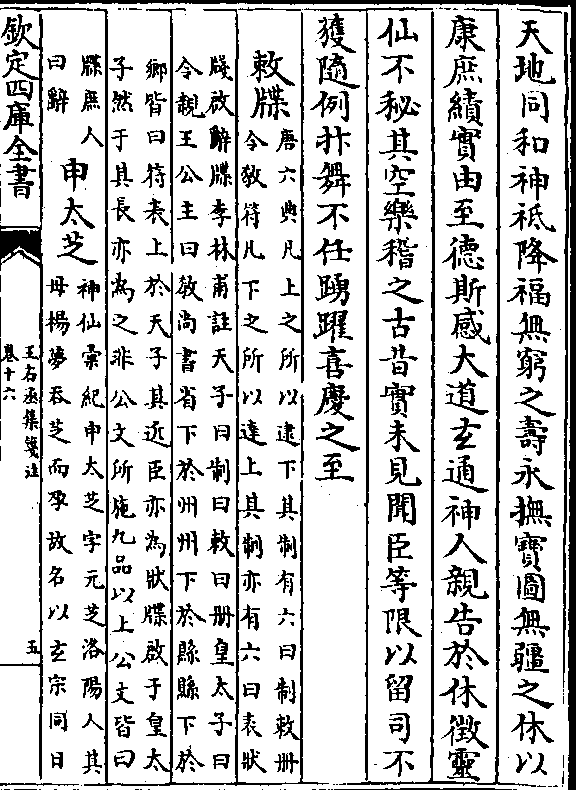 天地同和神祗降福無窮之壽永撫寶圖無疆之休以
康庶績實由至德斯感大道玄通神人親告於休徵靈
仙不秘其空樂稽之古昔實未見聞臣等限以留司不
獲隨例抃舞不任踴躍喜慶之至
敕牒
唐六典凡上之所以逮下其制有六曰制敕册
令教符凡下之所以達上其制亦有六曰表狀
牋啟辭牒李林甫註天子曰制曰敕曰册皇太子曰
令親王公主曰教尚書省下於州州下於縣縣下於
鄉皆曰符表上於天子其近臣亦為狀牒啟于皇太
子然于其長亦為之非公文所施九品以上公文皆曰
牒庶人
曰辭
申太芝
神仙彚紀申太芝字元芝洛陽人其
母楊夢吞芝而孕故名以玄宗同日
欽定四庫全書
王右丞集箋注
卷十六
五